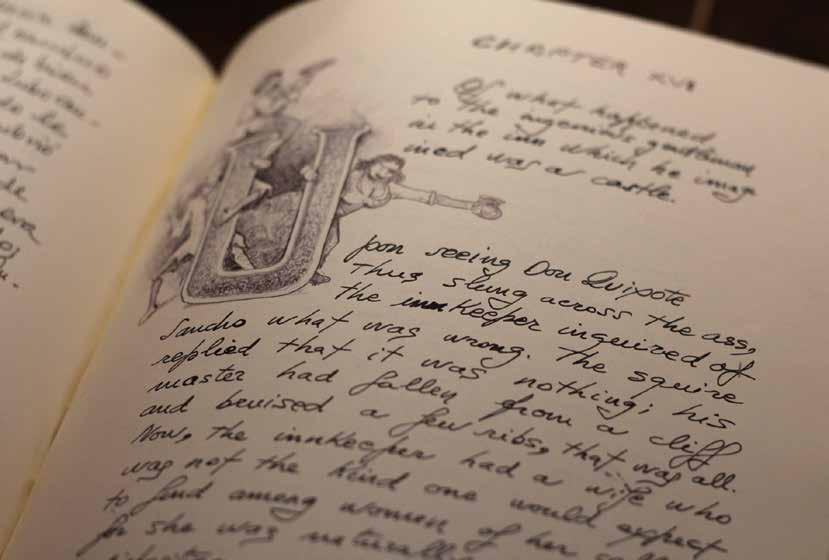 de la
de
CHAPTER XVI
Of what happened
to the ingenious gentleman
in the inn which he imag
ined was a castle.
Upon seeing Don Quixote
thus slung across the ass,
the innkeeper inquired of
Sancho what was wrong. The squire
replied that it was nothing; his
master had fallen from a cliff
and bruised a few ribs, that was all.
Now, the innkeeper had a wife who
was not the kind one would expect
to find among women of her
for she was naturally